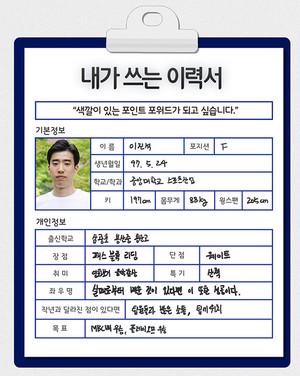 내가 쓰는 이력서
"색깔이 있는 포인트 포워드가 되고 싶습니다."
기본정보
이 름 이진석 포지션 F
생년월일 97. 5. 24
학교/학과 중앙대학교 스포츠산업
키 197cm 몸무게 88kg 윙스팬 205cm
개인정보
출신학교 용산중 용산고
장 점 패스 볼륨 리딩 단 점 웨이트
취 미 영화보기 음악감상 특 기 산책
좌 우 명 실패로부터 배운 것이 있다면 이 또한 성공이다.
작년과 달라진 점이 있다면
목 표 MBC배 우승, 플레이오프 우승